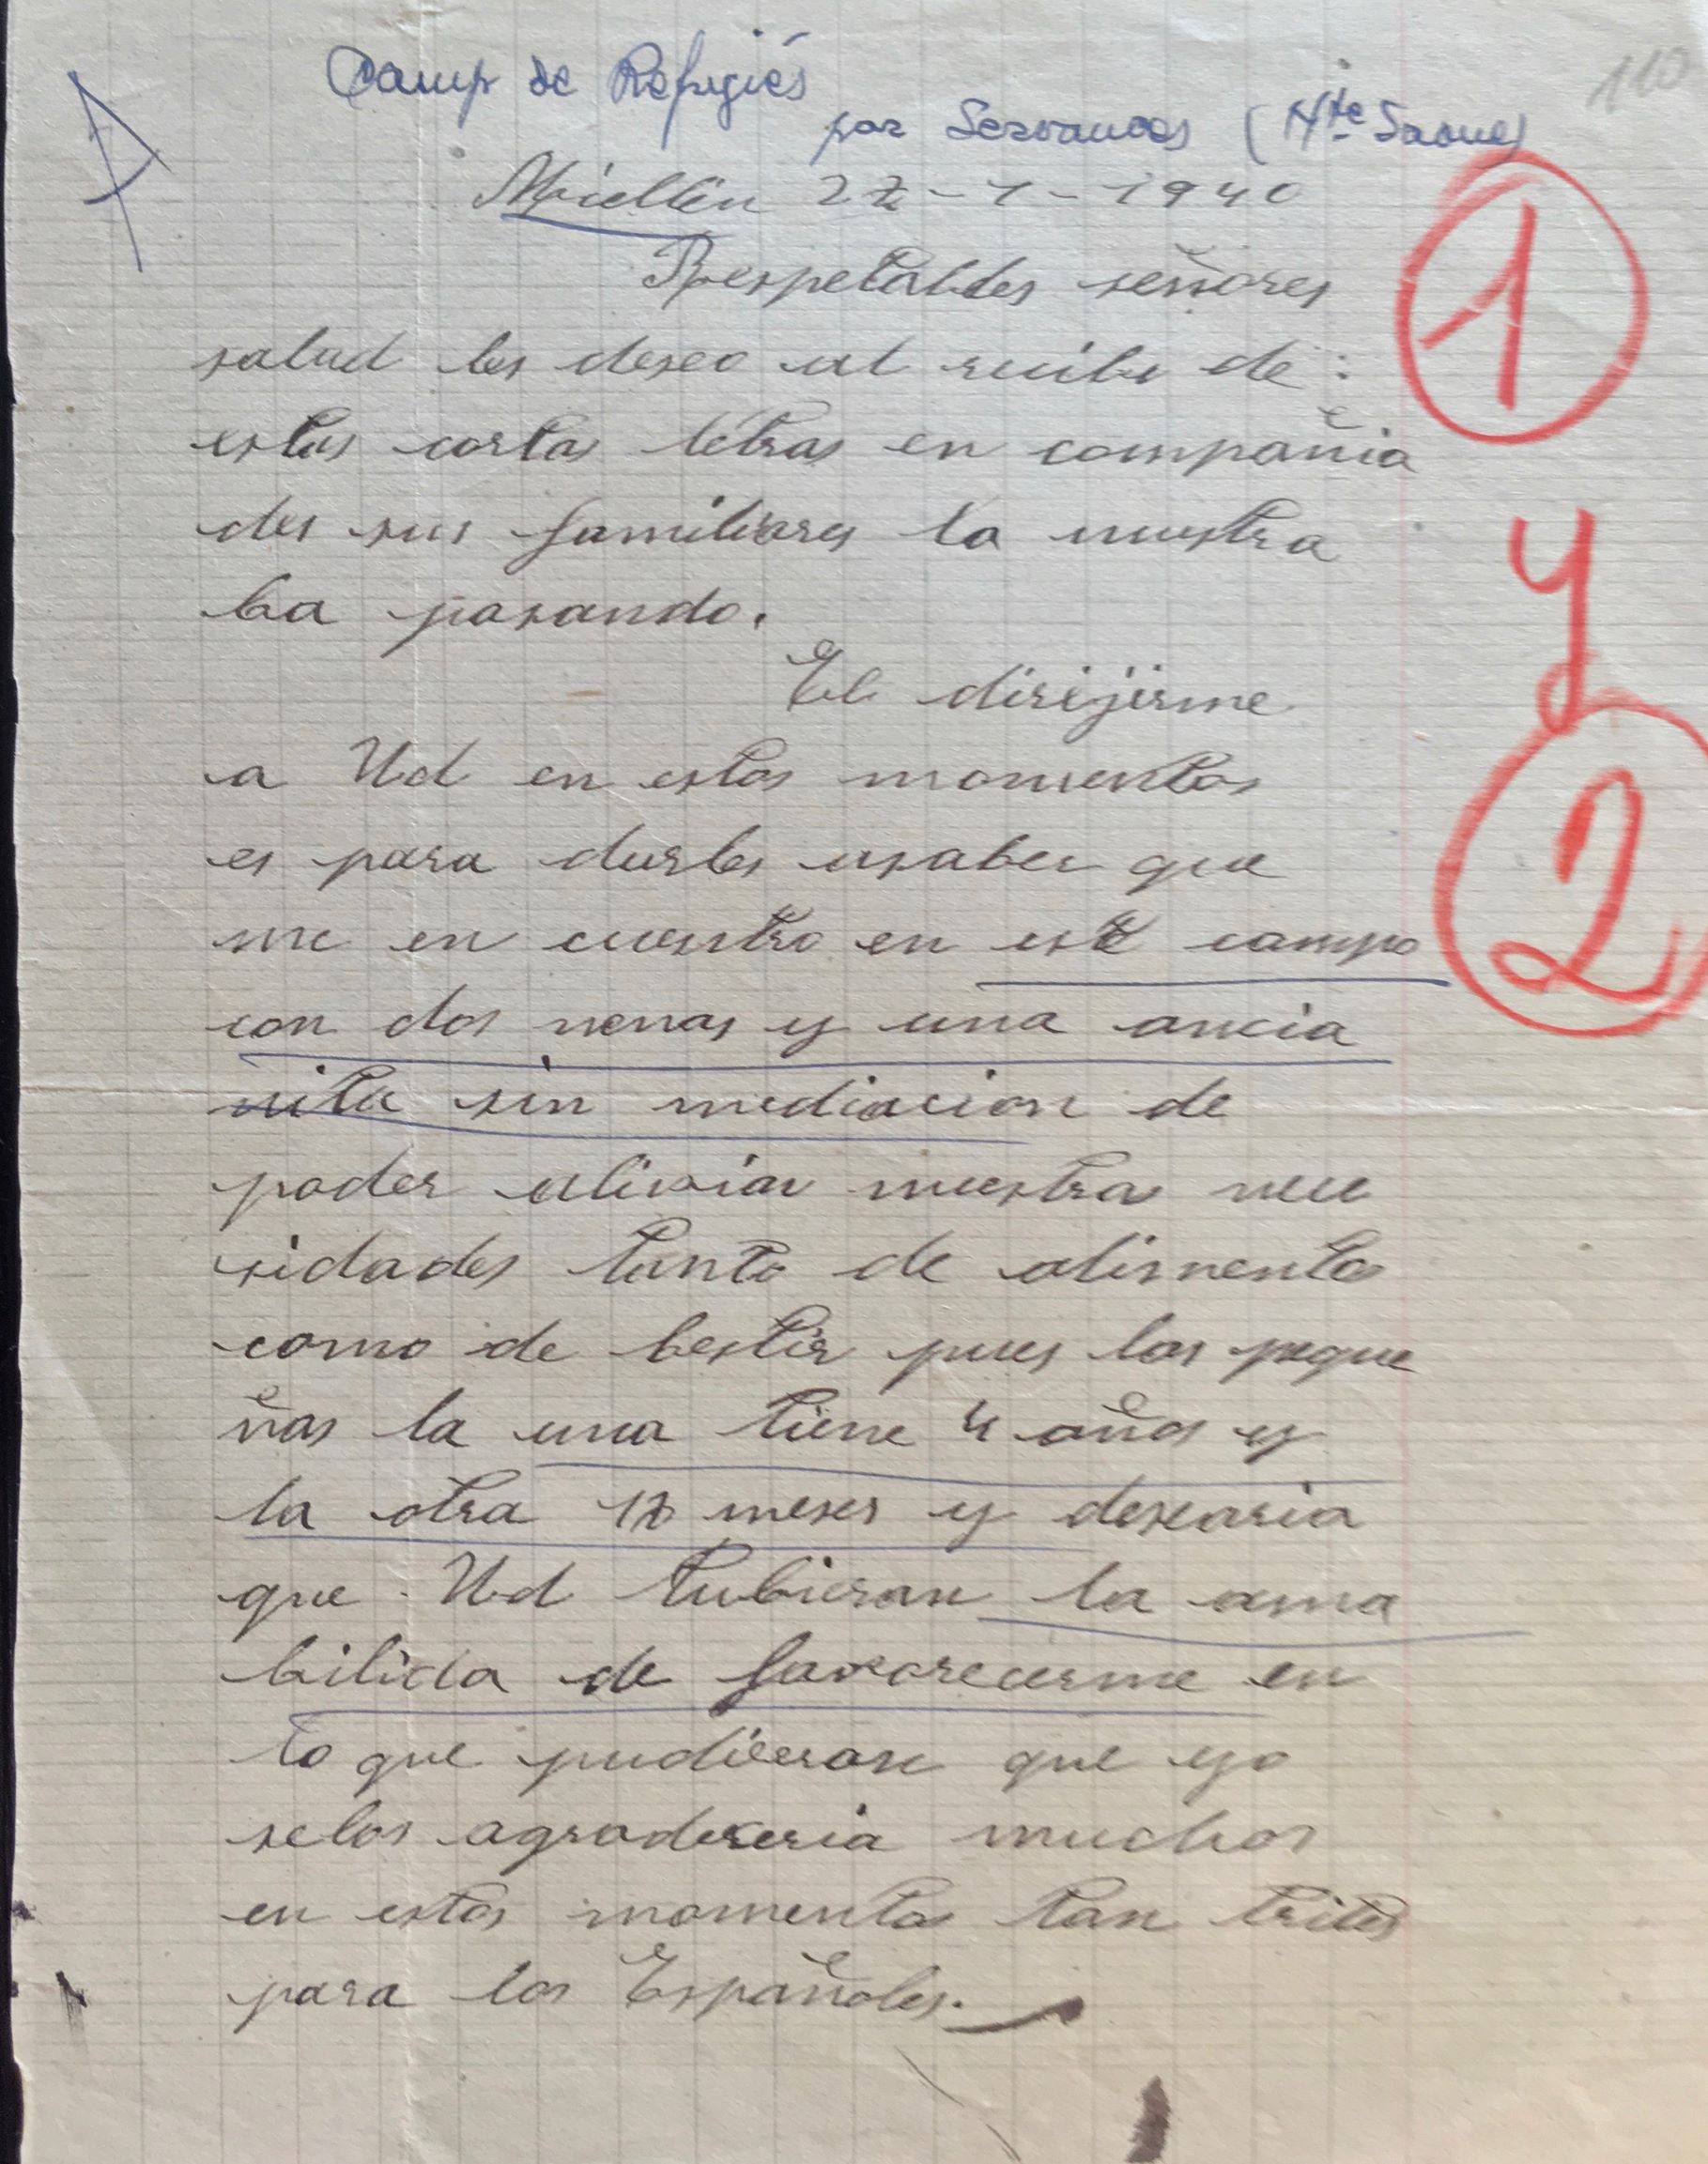 110
Camp de Refugiés
par Servances (Hte Saone)
Miellin 22-1-1940
Respetables señores
salud les deseo al recibi de:
estas cortas letras en compañia
des sus familiares la nuestra
ba pasando.
El dirijirme
a Ud en estos momentos
es para darles asaber que
me en cuentro en este campo
con dos nenas y una ancia
nita sin mediacion de
poder aliviar nuestra nece
sidades tanto de alimentos
como de bestir pues las peque
ñas la una tiene 4 años y
la otra 18 meses y desearia
que Ud tubieran la ama
bilida de favorecerme en
lo que pudieran que yo
selos agradeseria muchos
en estos momentos tan trites
para los Españoles.
1
y
2